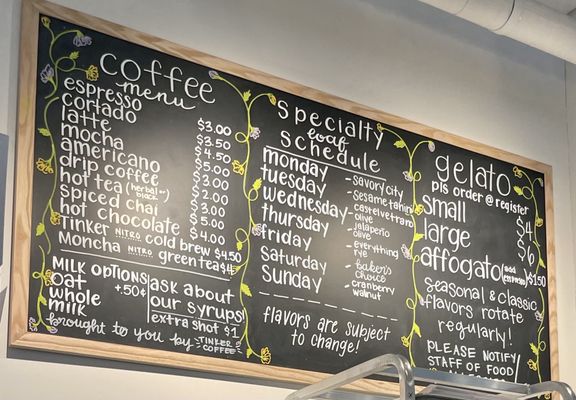 coffee
menu
espresso $3.00
cortado $3.50
latte $4.50
mocha $5.00
americano $3.00
drip coffee $2.00
hot tea (herbal or black) $3.00
spiced chai $5.00
hot chocolate $4.00
Tinker NITRO cold brew 4.50
Moncha NITRO green tea $4
MILK OPTIONS
oat +.50¢
whole
milk
ask about
our syrups
extra shot $1
brought to you by TINKER COFFEE
specialty
loaf
schedule
monday - savory city
tuesday - sesame tahini
wednesday - castelvetrano olive
thursday - jalapeno olive
friday - everything rye
saturday - baker's choice
sunday - cranberry walnut
flavors are subject
to change!
gelato
pls order @ register
small $4
large $6
affogato (add espresso) $1.50
seasonal & classic
flavors rotate
regularly!
PLEASE NOTIFY
STAFF OF FOOD